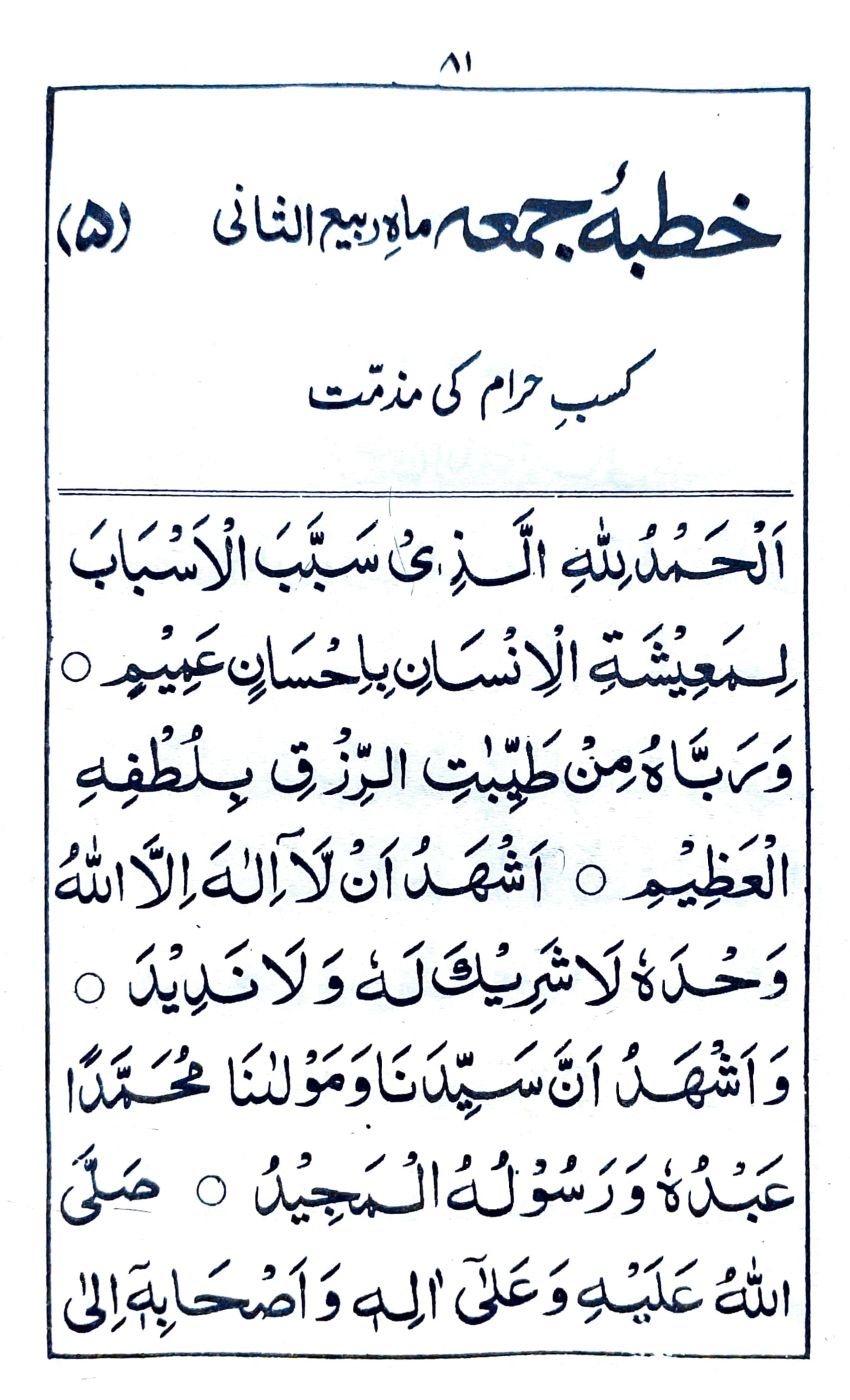 ۸۱
خطبۂ جمعہ ماہِ ربیع الثانی (۵)
کسبِ حرام کی مذمّت
اَلْحَمْدُ لِلّٰهِ الَّـذِیْ سَبَّبَ الْاَسْبَابَ
لِـمَعِيْشَةِ الْاِنْسَانِ بِاِحْسَانٍ عَمِيْمٍ ○
وَرَبَّاهُ مِنْ طَيِّبٰتِ الرِّزْقِ بِـلُطْفِهِ
الْعَظِيْمِ ○ اَشْهَدُ اَنْ لَّآ اِلٰهَ اِلَّا اللّٰهُ
وَحْدَهٗ لَا شَرِيْكَ لَهٗ وَلَا نَدِيْدَ ○
وَاَشْهَدُ اَنَّ سَيِّدَنَا وَمَوْلٰنَا مُحَمَّدًا
عَبْدُهٗ وَرَسُوْلُهُ الْمَجِيْدُ ○ صَلَّی
اللّٰهُ عَلَيْهِ وَعَلٰٓی اٰلِهٖ وَاَصْحَابِهٖٓ اِلٰی